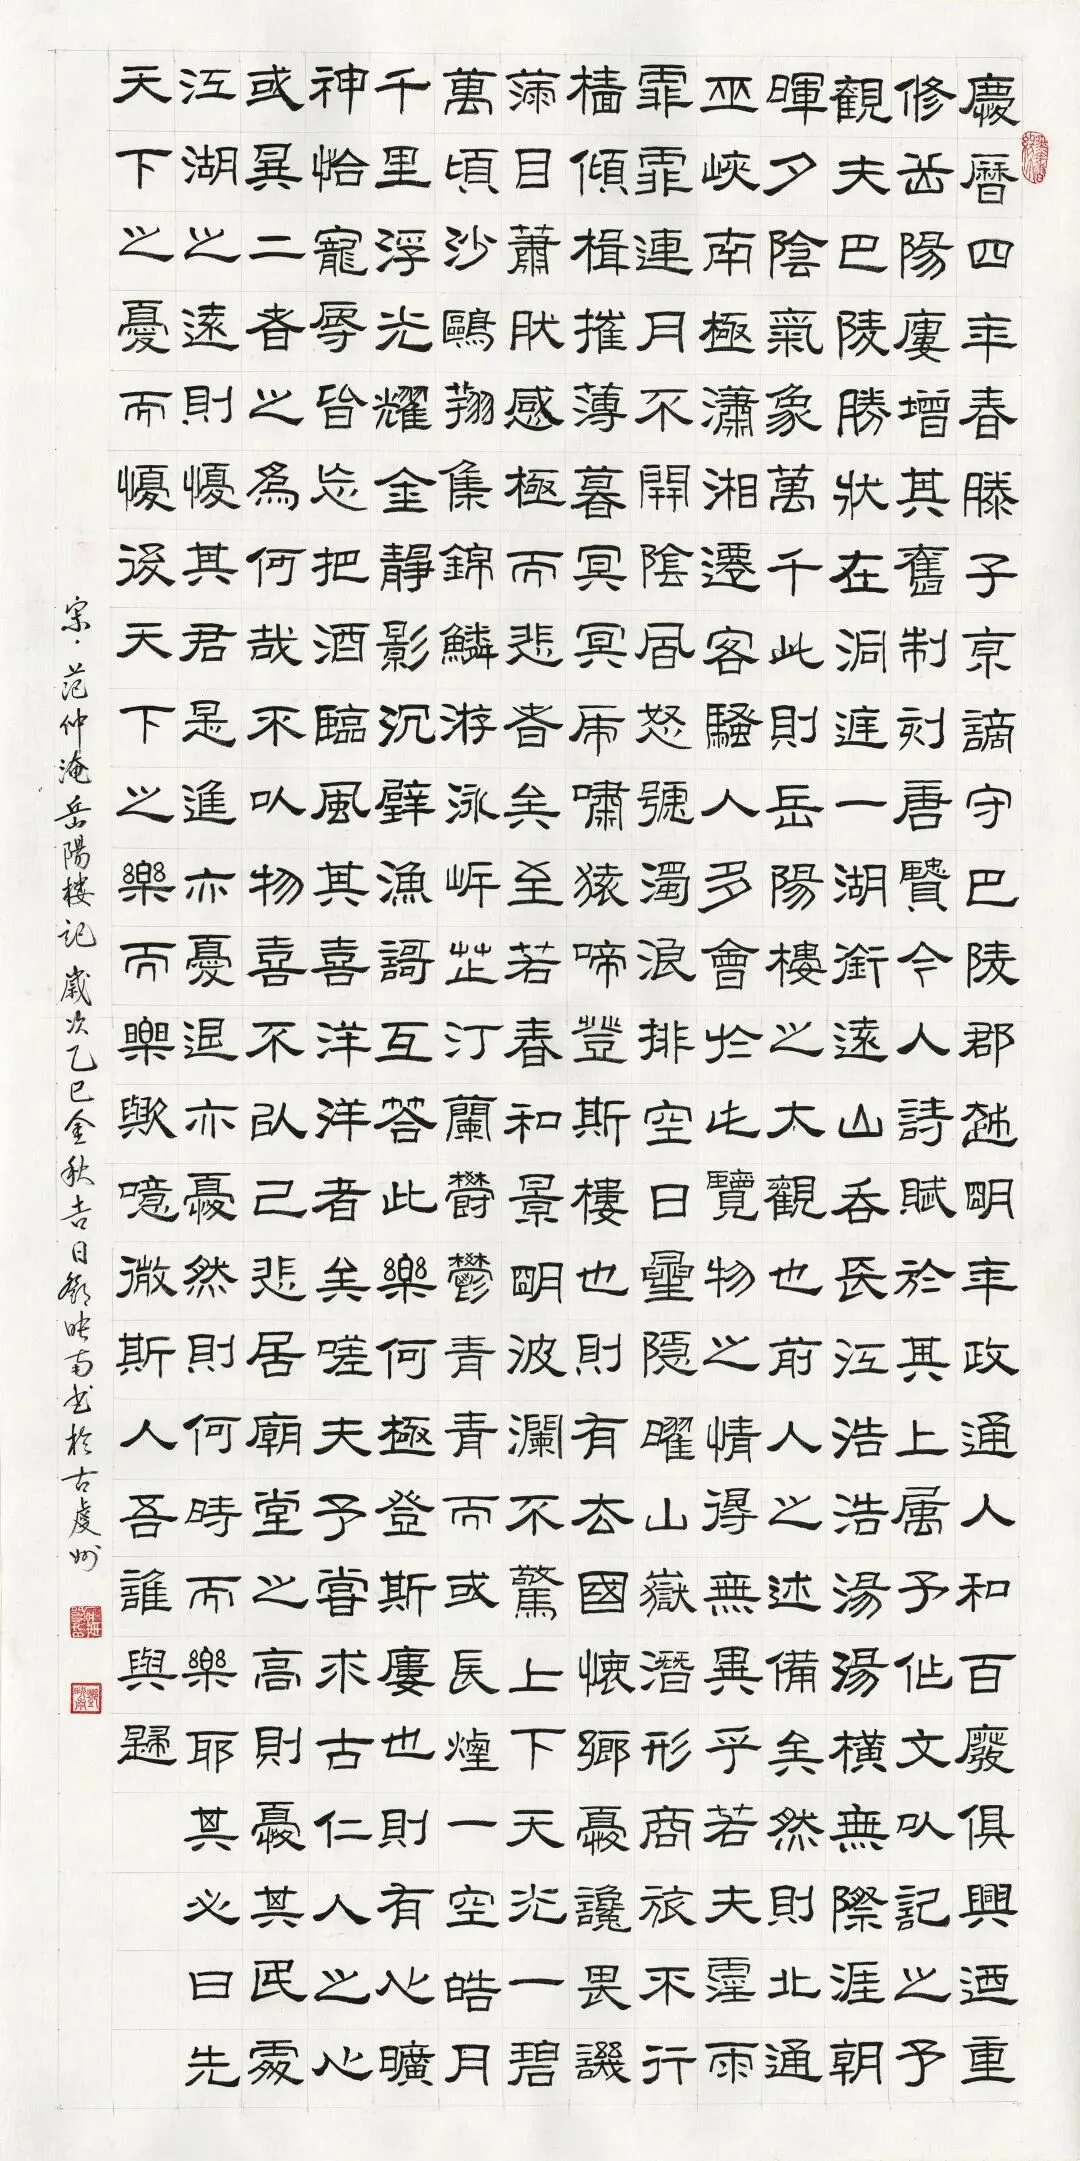 慶曆四年春滕子京謫守巴陵郡越明年政通人和百廢俱興迺重
修岳陽廔增其舊制刻唐賢今人詩賦於其上属予作文以記之予
觀夫巴陵勝狀在洞庭一湖銜遠山吞長江浩浩湯湯橫無際涯朝
暉夕陰氣象萬千此則岳陽樓之太觀也前人之述備矣然則北通
巫峽南極瀟湘遷客騷人多會於此覽物之情得無異乎若夫霪雨
霏霏連月不開陰風怒號濁浪排空日星隱曜山嶽潛形商旅不行
檣傾楫摧薄暮冥冥虎嘯猿啼登斯樓也則有去國懷鄉憂讒畏譏
滿目蕭肰感極而悲者矣至若春和景明波瀾不驚上下天光一碧
萬頃沙鷗翔集錦鱗游泳岸芷汀蘭鬱鬱青青而或長煙一空皓月
千里浮光耀金靜影沉璧漁謌互答此樂何極登斯廔也則有心曠
神怡寵辱皆忘把酒臨風其喜洋洋者矣嗟夫予嘗求古仁人之心
或異二者之為何哉不以物喜不以己悲居廟堂之高則憂其民處
江湖之遠則懮其君是進亦憂退亦憂然則何時而樂耶其必曰先
天下之憂而懮後天下之樂而樂歟噫微斯人吾誰與歸
宋·范仲淹岳陽樓記 歲次乙巳金秋吉日鄧映南書於古虔州